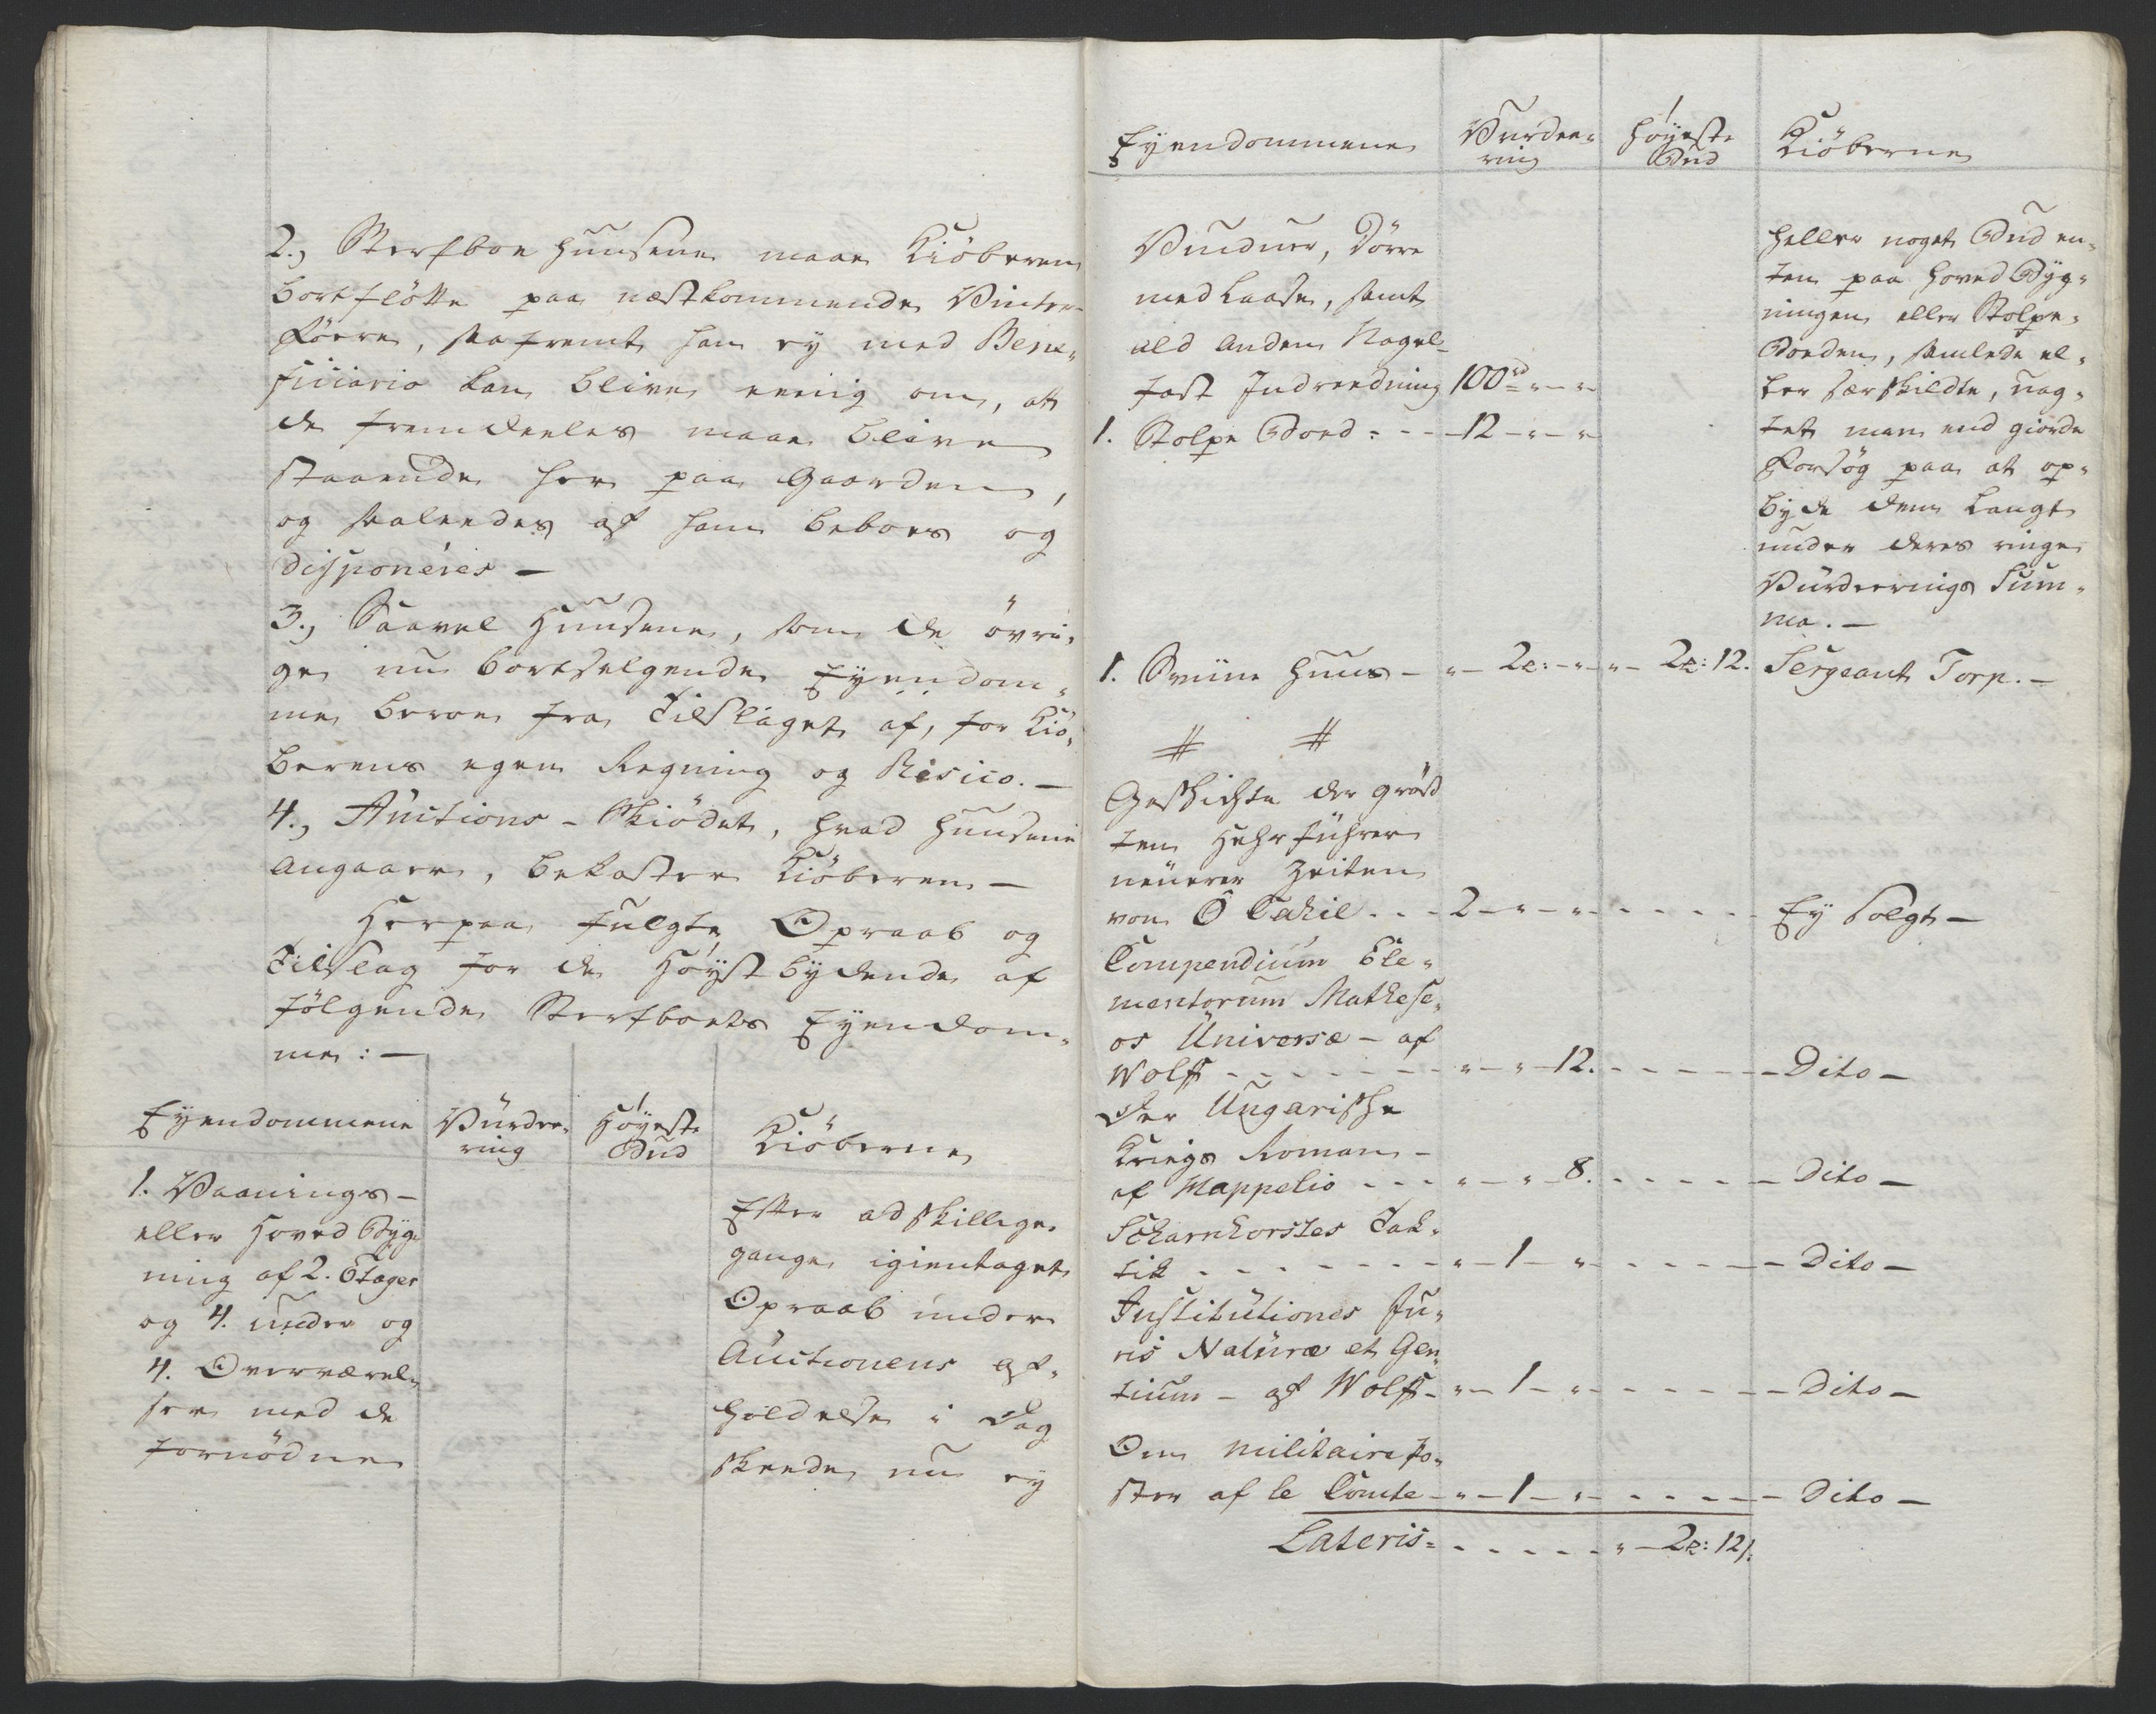 2., Sterfboe Huusene maae Kiöberen
bortflötte paa næstkommende Vinter-
Föere, saafremt han ey med Bene-
ficiario kan blive eenig om, at
de fremdeeles maae blive
staaende her paa Gaarden,
og saaleedes af ham beboes og
disponeres –
3., Saavel Huusene, som de övri-
ge nu bortselgende Eyendom-
me beroe fra Tilslaget af, for Kiö-
berens egen Regning og Risico. –
4., Auctions-Skiödet, hvad Huusene
angaaer, bekoster Kiöberen –
Herpaa fulgte Opraab og
Tilslag for de Höystbydende af
fölgende Sterfboets Eyendom-
me: –
Eyendommene
Vurdee-
ring
Höyeste
Bud
Kiöberne
1. Vaanings-
eller Hoved Byg-
ning af 2. Etager
og 4. under og
4. Overværel-
ser med de
fornödne
Efter adskillige
gange igientaget
Opraab under
Auctionens af-
holdelse i Dag
skeede nu ey
Eyendommene
Vurdee-
ring
Höyeste
Bud
Kiöberne
Vinduer, Dörre
med Laase, samt
ald anden Nagel-
fast Indreedning 100 rd „ – „
1. Stolpe Boed: - - - 12 – „ – „
heller noget Bud en-
ten paa Hoved Byg-
ningen eller Stolpe-
Boeden, samlede el-
ler særskildte, uag-
tet man end giorde
Forsög paa at op-
byde dem langt
under deres ringe
Vurderings Sum-
ma. –
1. Sviine Huus – „ – 2 – „ „ – 2: 12. Sergeant Torp. –
# #
Geschichte der gröss
ten Hehrführer
neuerer Zeiten
von O Cahil - - - 2 – „ – „ - - - - - Ey Solgt –
Compendium Ele-
mentorum Mathese-
os Universæ – af
Wolff - - - - - - „ – „ – 12. - - - - - Dito –
Der Ungarische
Kriegs Roman –
af Mappelio - - - „ – „ – 8. - - - - - Dito –
Scharnhorstes Tak-
tik - - - - - - - „ – 1 – „ - - - - - Dito –
Institutiones Ju-
ris Naturæ et Gen-
tium – af Wolff – „ – 1 – „ - - - - - Dito –
Om militaire Po-
ster af le Comte – „ – 1 – „ - - - - - Dito –
Lateris: - - - - - „ – 2: 12 /: